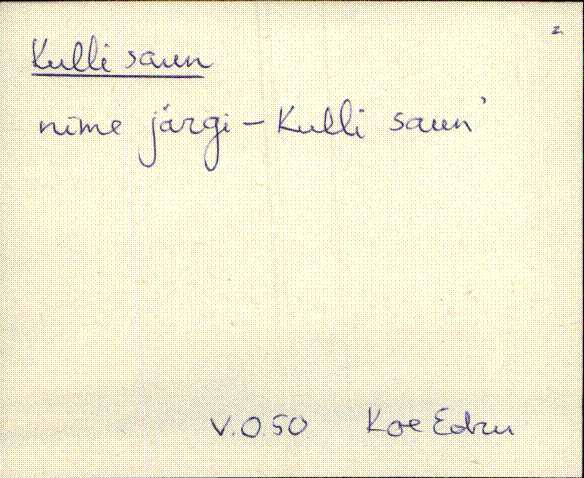 2
Kulli saun
nime järgi – Kulli saun'
V.O.50 Koe Edru